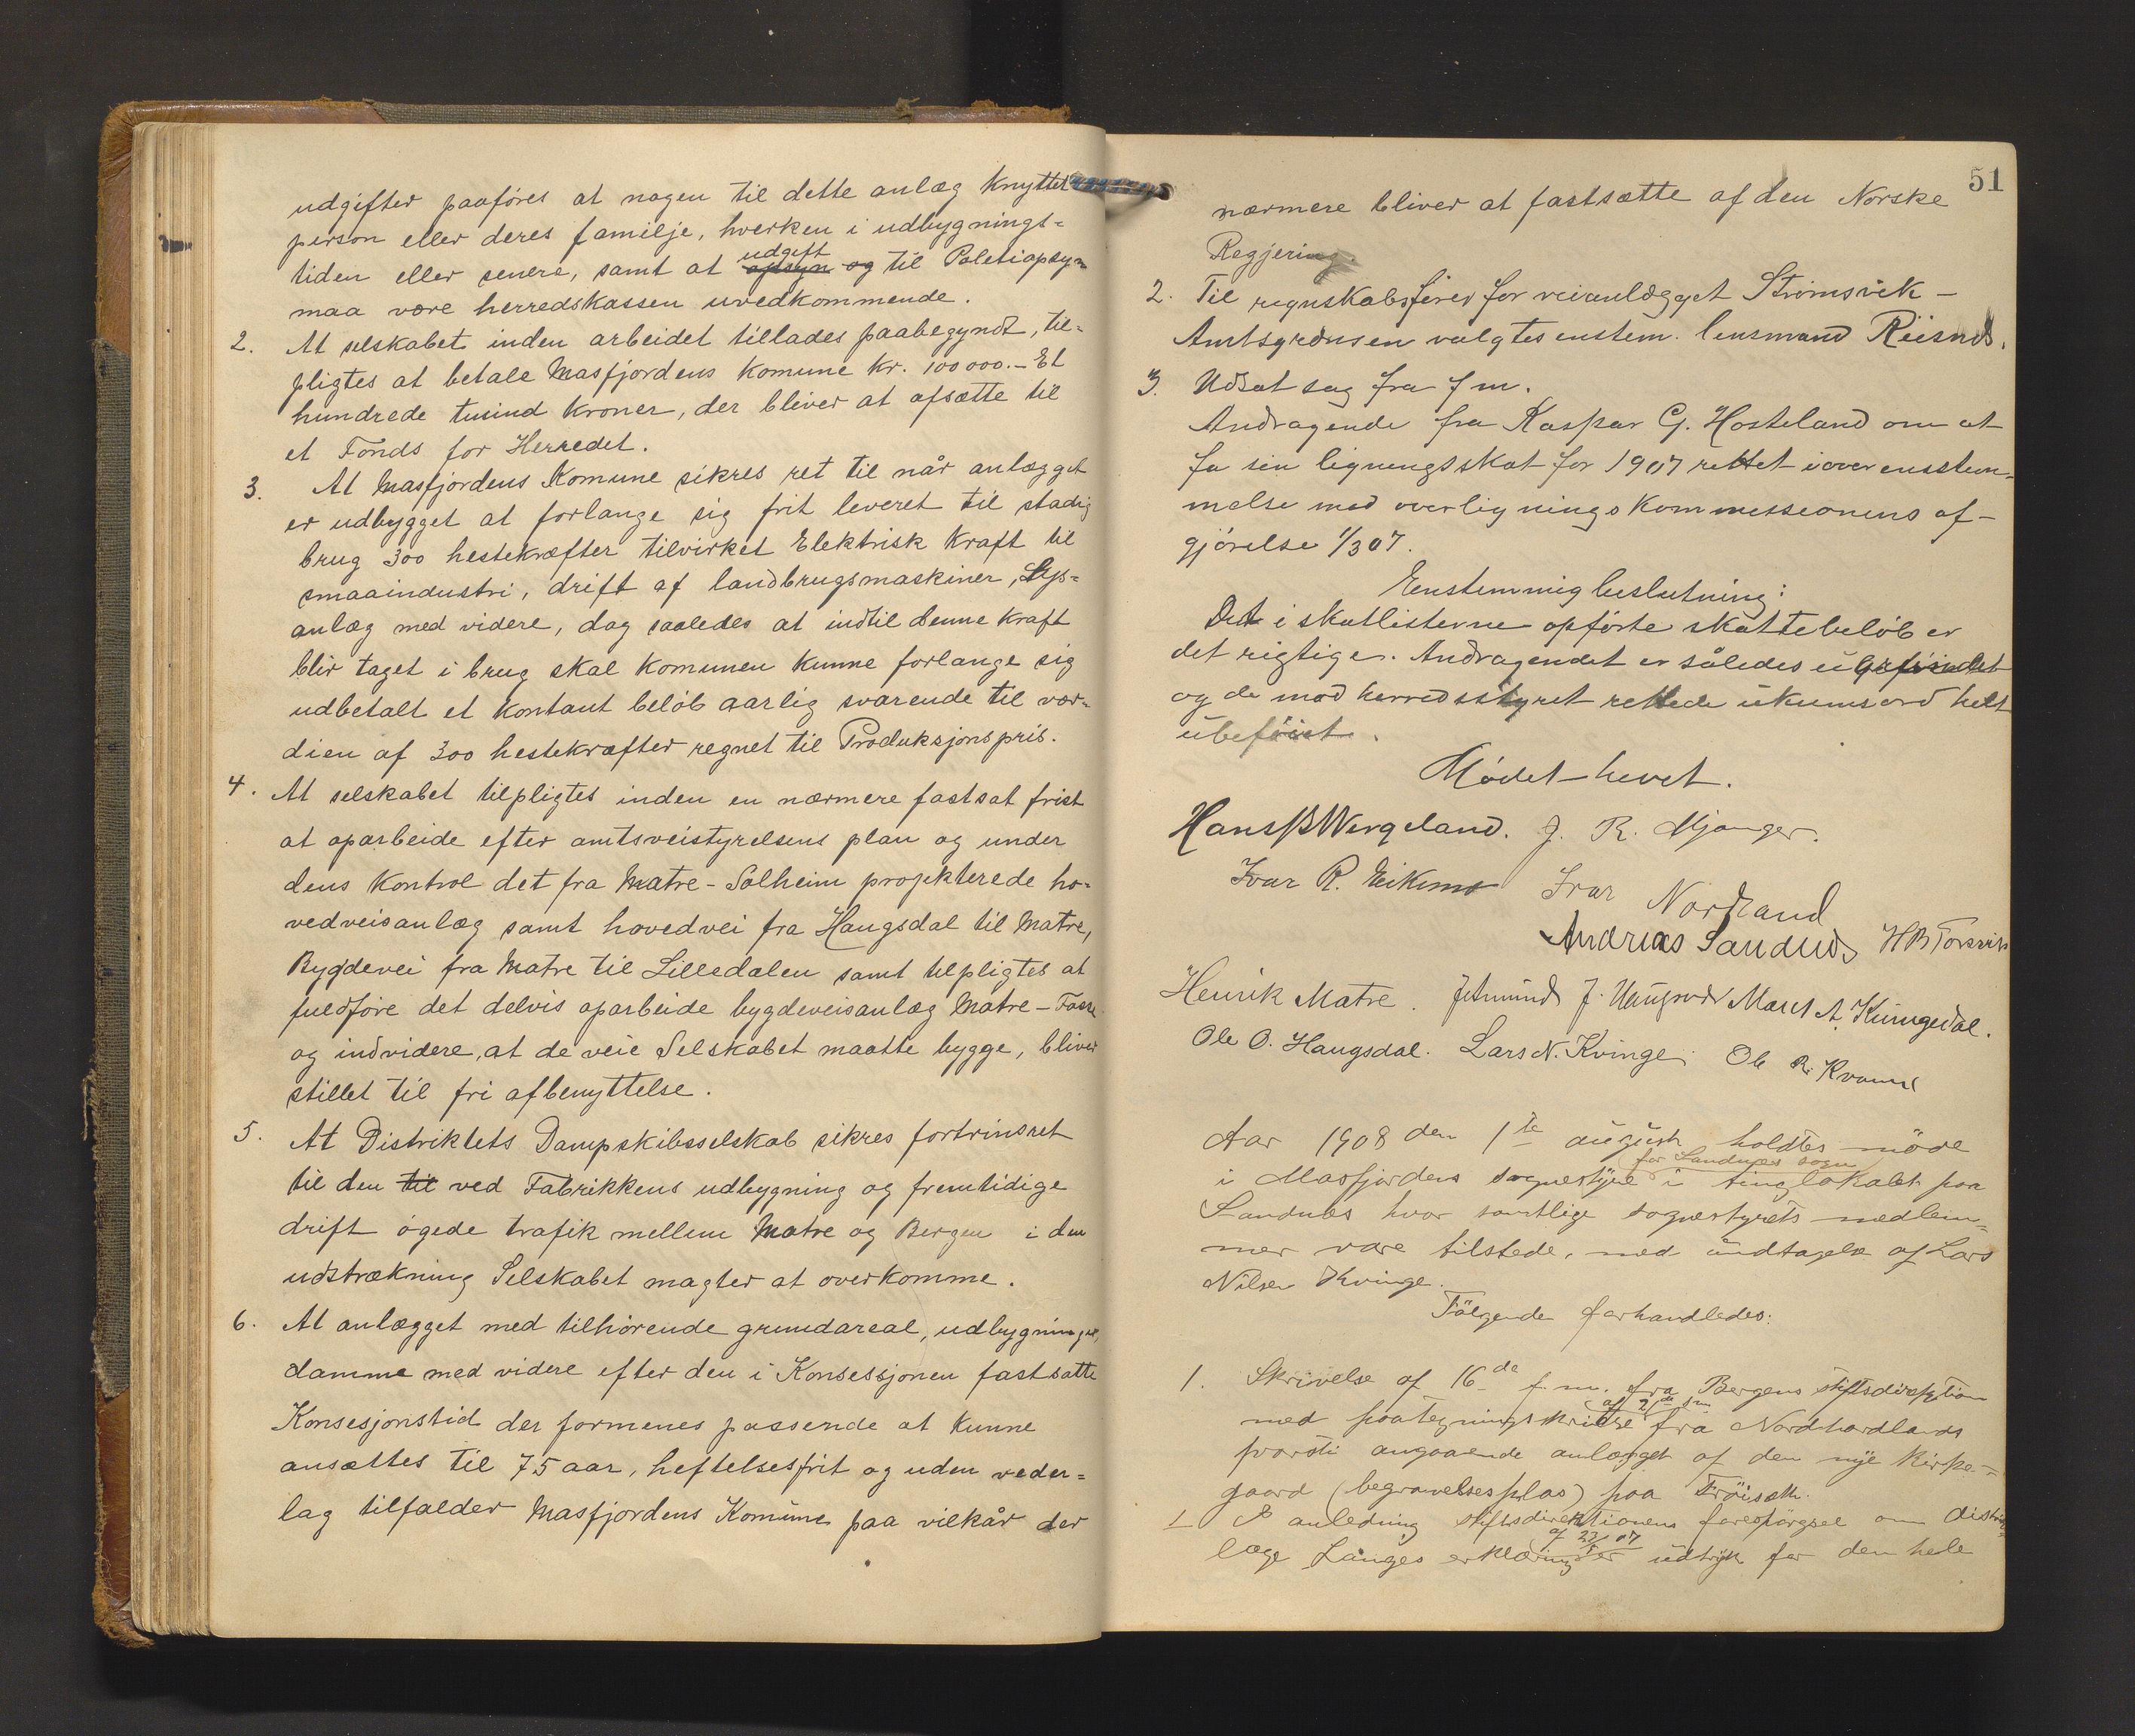 udgifter paaføres at nogen til dette anlæg knyttet
person eller deres familje, hverken i udbygnings=
tiden eller senere, samt at opsyn og udgift til Politiopsyn
maa være herredskassen uvedkommende.
2. At selskabet inden arbeidet tillades paabegyndt, til=
pligtes at betale Masfjordens Komune kr. 100 000.- Et
hundrede tusind kroner, der bliver at afsætte til
et Fonds for Herredet.
3. At Masfjordens Komune sikres ret til når anlægget
er udbygget at forlange sig frit leveret til stadig
brug 300 hestekræfter tilvirket Elektrisk Kraft til
smaaindustri, drift af landbrugsmaskiner, Lys=
anlæg med videre, dog saaledes at indtil denne Kraft
blir taget i brug skal Komunen kunne forlange sig
udbetalt et Kontant beløb aarlig svarende til vær=
dien af 300 hestekræfter regnet til Produksjonspris.
4. At selskabet tilpligtes inden en nærmere fastsat frist
at oparbeide efter amtsveistyrelsens plan og under
dens Kontrol det fra Matre-Solheim projekterede ho=
vedveisanlæg samt hovedvei fra Haugsdal til Matre,
Bygdevei fra Matre til Lilledalen samt tilpligtes at
fuldføre det delvis oparbeide bygdeveisanlæg Matre-
og indvidere, at de veie Selskabet maatte bygge, bliver
stillet til fri afbenyttelse.
5. At Distriktets Dampskibsselskab sikres fortrinsret
til den til ved Fabrikkens udbygning og fremtidige
drift øgede trafik mellem Matre og Bergen i den
udstrækning Selskabet magter at overkomme.
6. At anlægget med tilhørende grundareal, udbygninger,
damme med videre efter den i Konsessjonen fastsatte
Konsesjonstid der formenes passende at kunne
ansættes til 75 aar, heftelsesfrit og uden veder=
lag tilfalder Masfjordens Komune paa vilkår der
51
nærmere bliver at fastsætte af den Norske
Regjering.
2. Til regnskabsfører for veianlægget Strømsvik -
Amtsgrænsen valgtes enstem. lensmand Reisnes.
3. Udsat sag fra f m.
Andragende fra Kaspar G. Hosteland om at
fa sin ligningsskat for 1907 rettet i overenstem=
melse med overligningskommissionens af-
gjørelse 1/3 07.
Eenstemmig beslutning:
Det i skatlisterne opførte skattebeløb er
det rigtige. Andragendet er således ubeføiet
og de mod herredsstyret rettede ukvemsord helt
ubeføiet.
Mødet hevet.
Hans B Wergeland. J. R. Mjanger.
Ivar R. Eikemo Ivar Nordland
Andreas Sandnes H B Torsvik
Henrik Matre. J. Mares A. Kvingedal.
Ole O. Haugsdal. Lars N. Kvinge. Ole R. Kvamme
Aar 1908 den 1te august holdtes møde
i Masfjorden sognestyre for Sandnes sogn i tinglokalet paa
Sandnes hvor samtlige sognestyrets medlem=
mer vare tilstede, med undtagelse af Lars
Nilsen Kvinge.
Følgende forhandledes:
1. Skrivelse af 16de f. m. fra Bergens stiftsdirektion
med paategningsskrivelse af 21de s m fra Nordhordlands
provsti angaaende anlægget af den nye kirke=
gaard (begravelsesplas) paa Frøiseth.
1 I anledning stiftsdirektionens forespørgsel om distrikts
læge Langes erklæring af 23/5 07 er udtryk for den hele